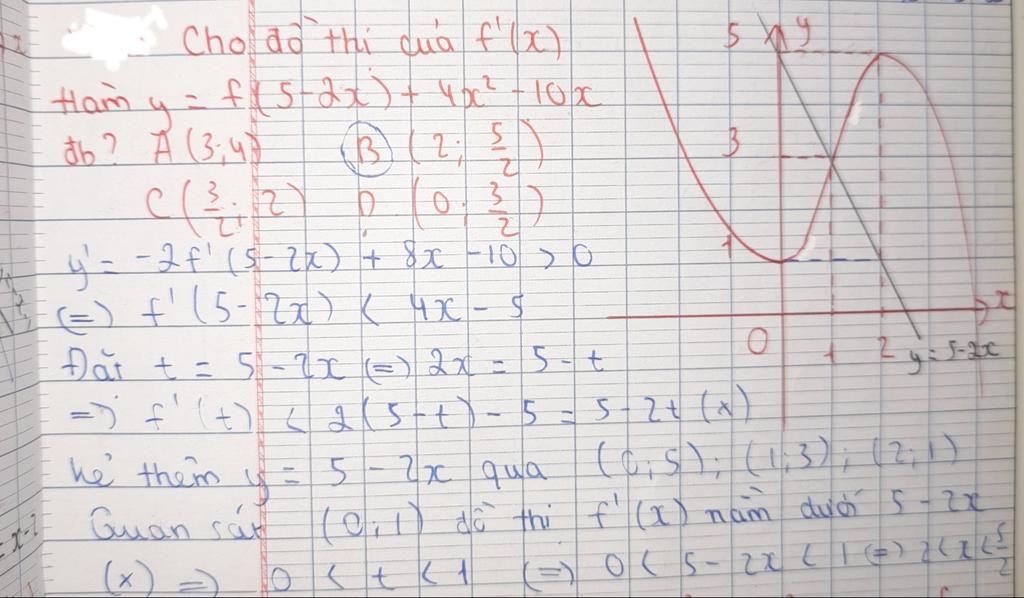 Cho đồ thi của f'(x)
Hàm y = f(5-2x) + 4x² - 10x
đb? A (3;4) B (2; 5/2)
C (3/2; 2) D (0; 3/2)
y' = -2f'(5-2x) + 8x - 10 > 0
(=) f'(5-2x) < 4x - 5
Đặt t = 5 - 2x (=) 2x = 5 - t
=> f'(t) < 2(5-t) - 5 = 5 - 2t (x)
kẻ thêm y = 5 - 2x qua (0;5); (1;3); (2;1)
Quan sát (0;1) đồ thi f'(x) nằm dưới 5 - 2x
(x) => 0 < t < 1 (=) 0 < 5 - 2x < 1 (=) 2 < x < 5/2
5 y
3
1
x
0 1 2 y = 5-2x